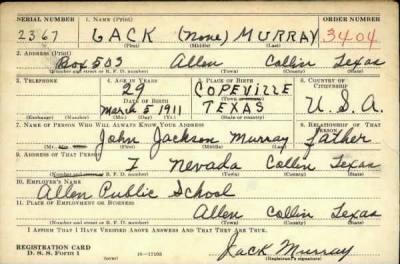 SERIAL NUMBER 1. NAME (Print) ORDER NUMBER
2367 LACK (none) MURRAY 3404
(First) (Middle) (Last)
2. ADDRESS (Print)
Box 503 Allen Collin Texas
(Number and street or R. F. D. number) (Town) (County) (State)
3. TELEPHONE 4. AGE IN YEARS 5. PLACE OF BIRTH 6. COUNTRY OF CITIZENSHIP
29 COPEVILLE
DATE OF BIRTH (Town or county)
March 5 1911 TEXAS U.S.A.
(Exchange) (No.) (Mo.) (Day) (Yr.) (State or country)
7. NAME OF PERSON WHO WILL ALWAYS KNOW YOUR ADDRESS 8. RELATIONSHIP OF THAT PERSON
John Jackson Murray Father
(Mr., Mrs., Miss) (First) (Middle) (Last)
9. ADDRESS OF THAT PERSON
Nevada Collin Texas
(Number and street or R. F. D. number) (Town) (County) (State)
10. EMPLOYER'S NAME
Allen Public School
11. PLACE OF EMPLOYMENT OR BUSINESS
Allen Collin Texas
(Number and street or R. F. D. number) (Town) (County) (State)
I AFFIRM THAT I HAVE VERIFIED ABOVE ANSWERS AND THAT THEY ARE TRUE.
REGISTRATION CARD
D. S. S. Form 1 Jack Murray
(Registrant's signature)